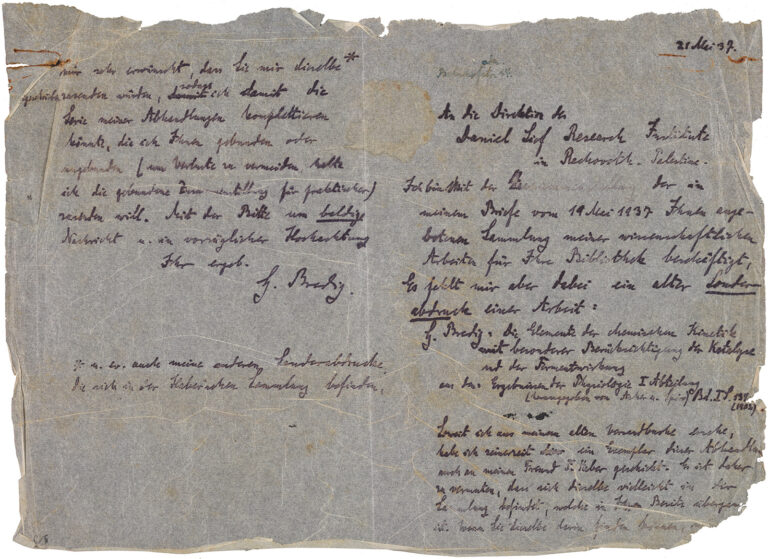 21 Mei 37.
An die Direktion des
Daniel Sief Research Institute
in Rechovoth - Palestine.
Ich bin mit der der in
meinem Briefe vom 19 Mei 1937 Ihnen ange-
botenen Sammlung meiner wissenschaftlichen
Arbeiten für Ihre Bibliothek beschäftigt,
Es fehlt mir aber dabei ein alter Sonder-
abdruck einer Arbeit:
G. Bredig: Die Elemente der chemischen Kinetik
mit besonderer Berücksichtigung der Katalyse
und der Fermentwirkung
aus den Ergebnissen der Physiologie I Abteilung
(herausgegeben von Asher u. Spiro) Bd. I S. 134
(1902).
Soweit ich aus meinem alten Versandbuche ersehe,
habe ich seinerzeit ein Exemplar dieser Abhandlun
auch an meinen Freund F. Haber geschickt. Es ist daher
zu vermuten, dass sich dieselbe vielleicht in der
Sammlung befindet, welche in Ihren Besitz übergegan
ist. Wenn Sie dieselbe darin finden können,
mir sehr erwünscht, dass Sie mir dieselbe *
geschickt zusenden würden, sodass ich damit die
Serie meiner Abhandlungen komplettieren
könnte, die ich Ihnen gebunden oder
ungebunden (um Verluste zu vermeiden halte
ich die gebundene Form für praktischer)
zusenden will. Mit der Bitte um baldige
Nachricht u. in vorzüglicher Hochachtung
Ihr ergeb.
G. Bredig.
* u. er. auch meine anderen Sonderabdrucke,
die sich in der Haberschen Sammlung befinden,